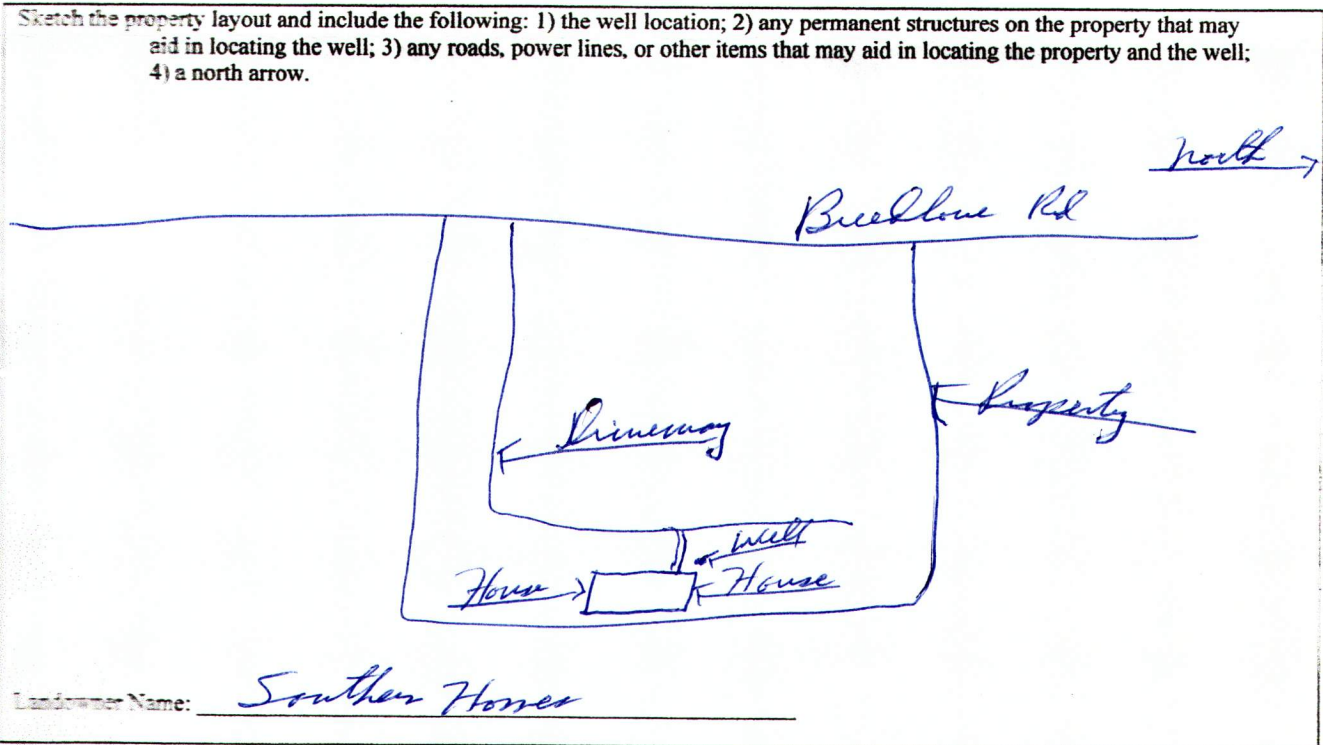 Sketch the property layout and include the following: 1) the well location; 2) any permanent structures on the property that may
aid in locating the well; 3) any roads, power lines, or other items that may aid in locating the property and the well;
4) a north arrow.
North
Breedlove Rd
Property
Driveway
Well
House
House
Landowner Name: Southern Homes